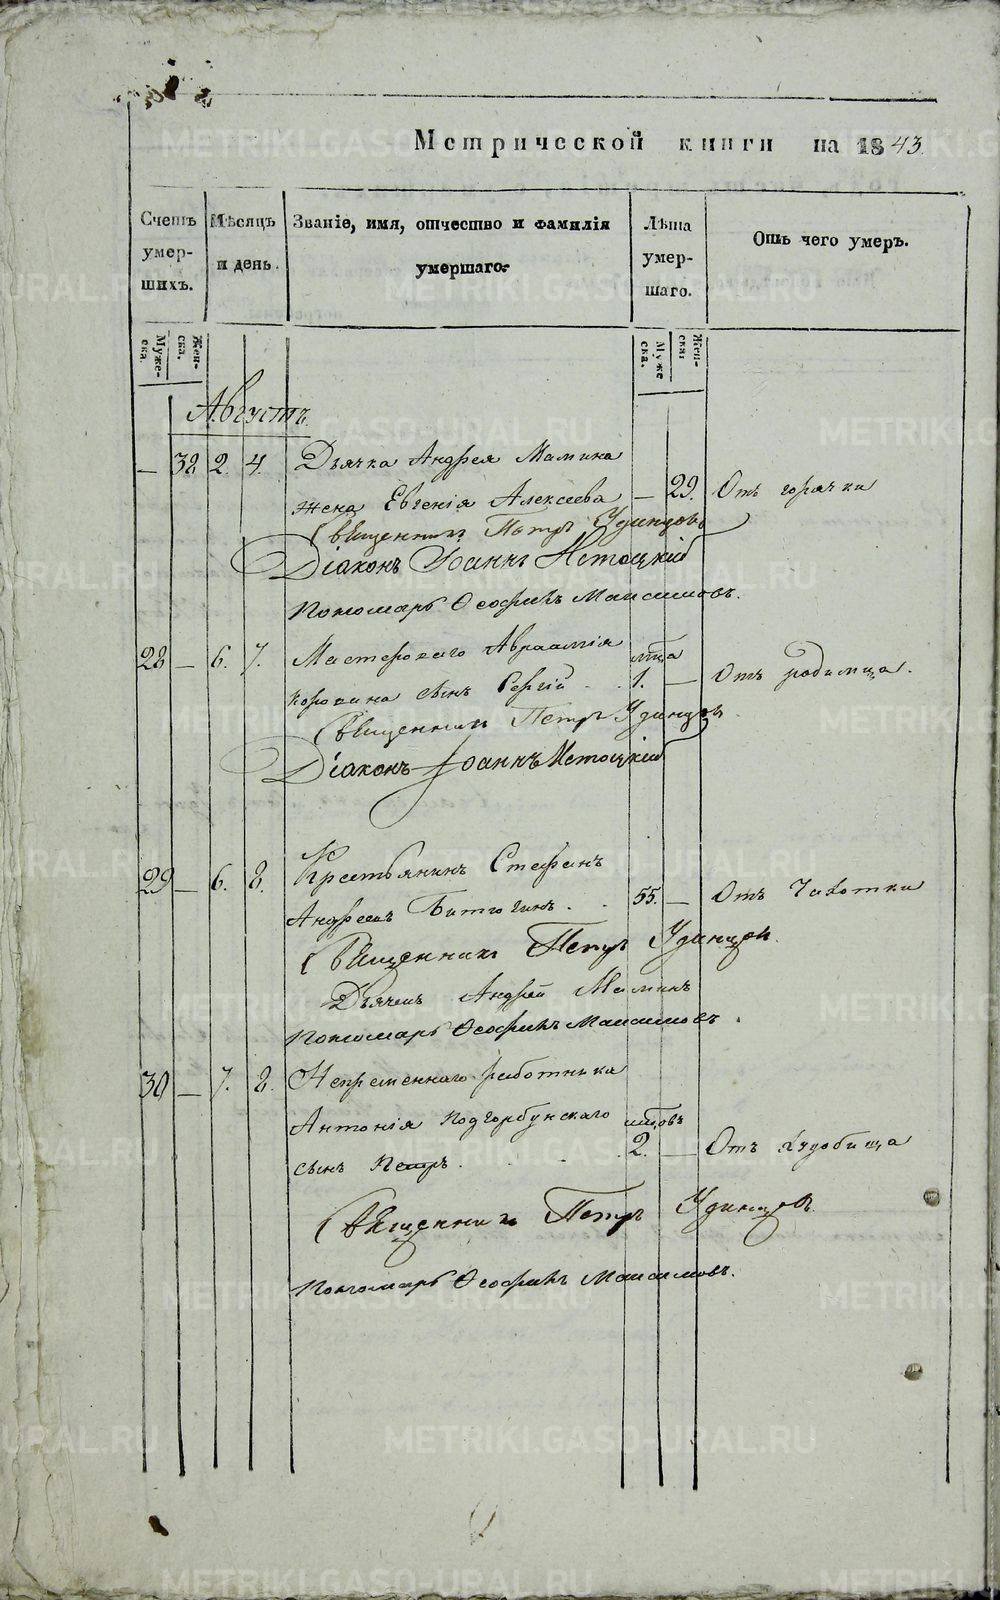 Метрической книги на 1843.
Счетъ умер- шихъ.
Мѣсяцъ и день.
Званіе, имя, отчество и фамилія умершаго.
Лѣта умер- шаго.
Отъ чего умеръ.
Муже- ска.
Жен- ска.
Муже ска
Жен- ска
Августъ
— 38 2. 4. Дьячка Андрея Мамина
жена Евгенія Алексеева — 29. Отъ горячки
Священникъ Петръ Удинцовъ
Діаконъ Іоаннъ
Пономарь Ѳеофилъ Максимовъ.
28 — 6. 7. Мастероваго Авраамія мца
сынъ Сергій 1. — Отъ родимца.
Священникъ Петръ Удинцовъ.
Діаконъ Іоаннъ
29 — 6. 8. Крестьянинъ Стефанъ
Андреевъ 55. — Отъ Чахотки
Священникъ Петръ Удинцовъ.
Дьячекъ Андрей Маминъ
Пономарь Ѳеофилъ Максимовъ.
30 — 7. 8. Непременнаго работника
Антонія Подгорбунскаго мцовъ
сынъ Петръ. 2. — Отъ
Священникъ Петръ Удинцовъ.
Пономарь Ѳеофилъ Максимовъ.
METRIKI.GASO-URAL.RU